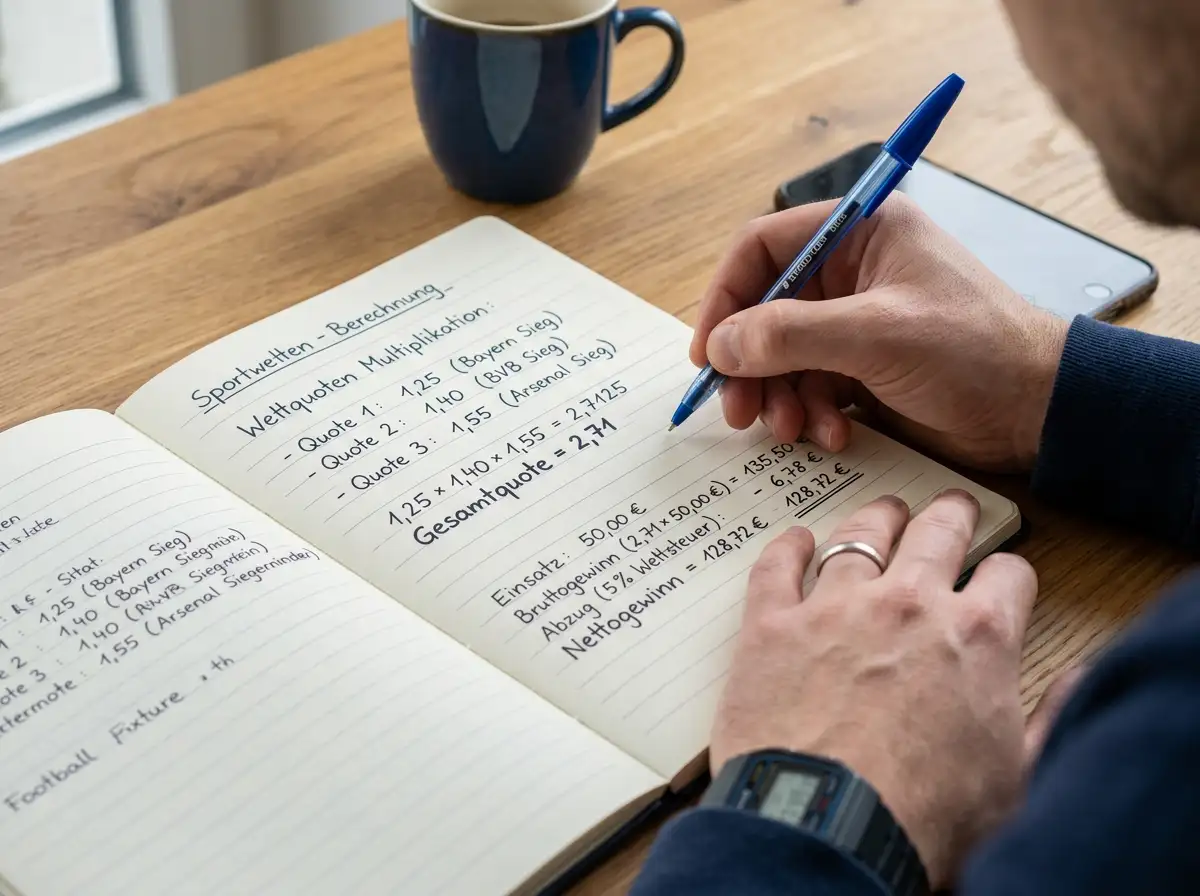 1,25 (Bayern Sieg)
1,40 (Bayern Siegmübe)
Quote 3 : 1,40 (
1,55 (Arsenal Siegerninder)
Football Fixture
Sportwetten - Berechnung
Wettquoten Multiplikation:
- Quote 1: 1,25 (Bayern Sieg)
- Quote 2: 1,40 (BVB Sieg)
- Quote 3: 1,55 (Arsenal Sieg)
1,25 × 1,40 × 1,55 = 2,7125
Gesamtquote = 2,71
Einsatz: 50,00 €
Bruttogewinn (2,71 × 50,00 €) = 135,50 €
Abzug (5% Wettsteuer): - 6,78 €
Nettogewinn = 128,72 € 128,72 €